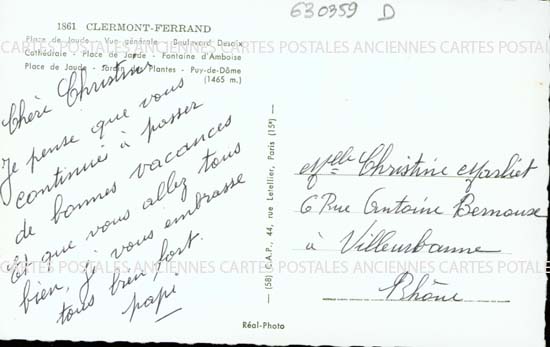 630359 D
1861 CLERMONT-FERRAND
Place de Jaude - Vue générale - Boulevard Desaix
Cathédrale - Place de Jaude - Fontaine d'Amboise
Place de Jaude - Jardin des Plantes - Puy-de-Dôme
(1465 m.)
CARTES POSTALES ANCIENNES CARTES POSTALES ANCIENNES CARTES POSTALES
Chère Christine
Je pense que vous
continuié à passer
de bonnes vacances
Et que vous allez tous
bien, je vous embrasse
tous bien fort.
papi
(58) C.A.P., 44, rue Letellier, Paris (15e)
Melle Christine
6 Rue Antoine
à Villeurbanne
Rhône
CARTES POSTALES ANCIENNES CARTES POSTALES ANCIENNES CARTES POSTALES
Réal-Photo